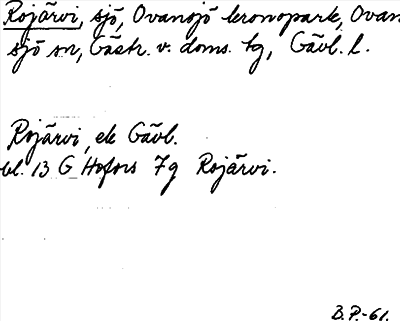 Rojärvi, sjö, Ovansjö kronopark, Ovan
sjö sn, Gästr. v. doms. tg, Gävl. l.
Rojärvi, ek Gävl.
bl. 13 G Hofors 7g Rojärvi.
B.P.-61.